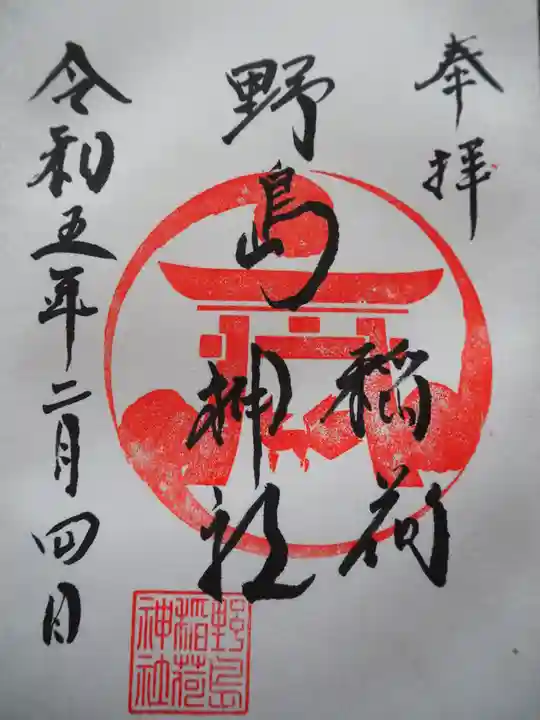 奉拝
野島
稲荷
神社
令和五年二月四日
野島
稲荷
神社